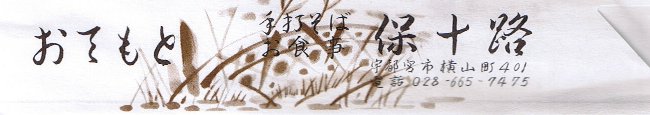 おてもと
手打そば
お食事
保十路
宇都宮市横山町401
電話 028-665-7475